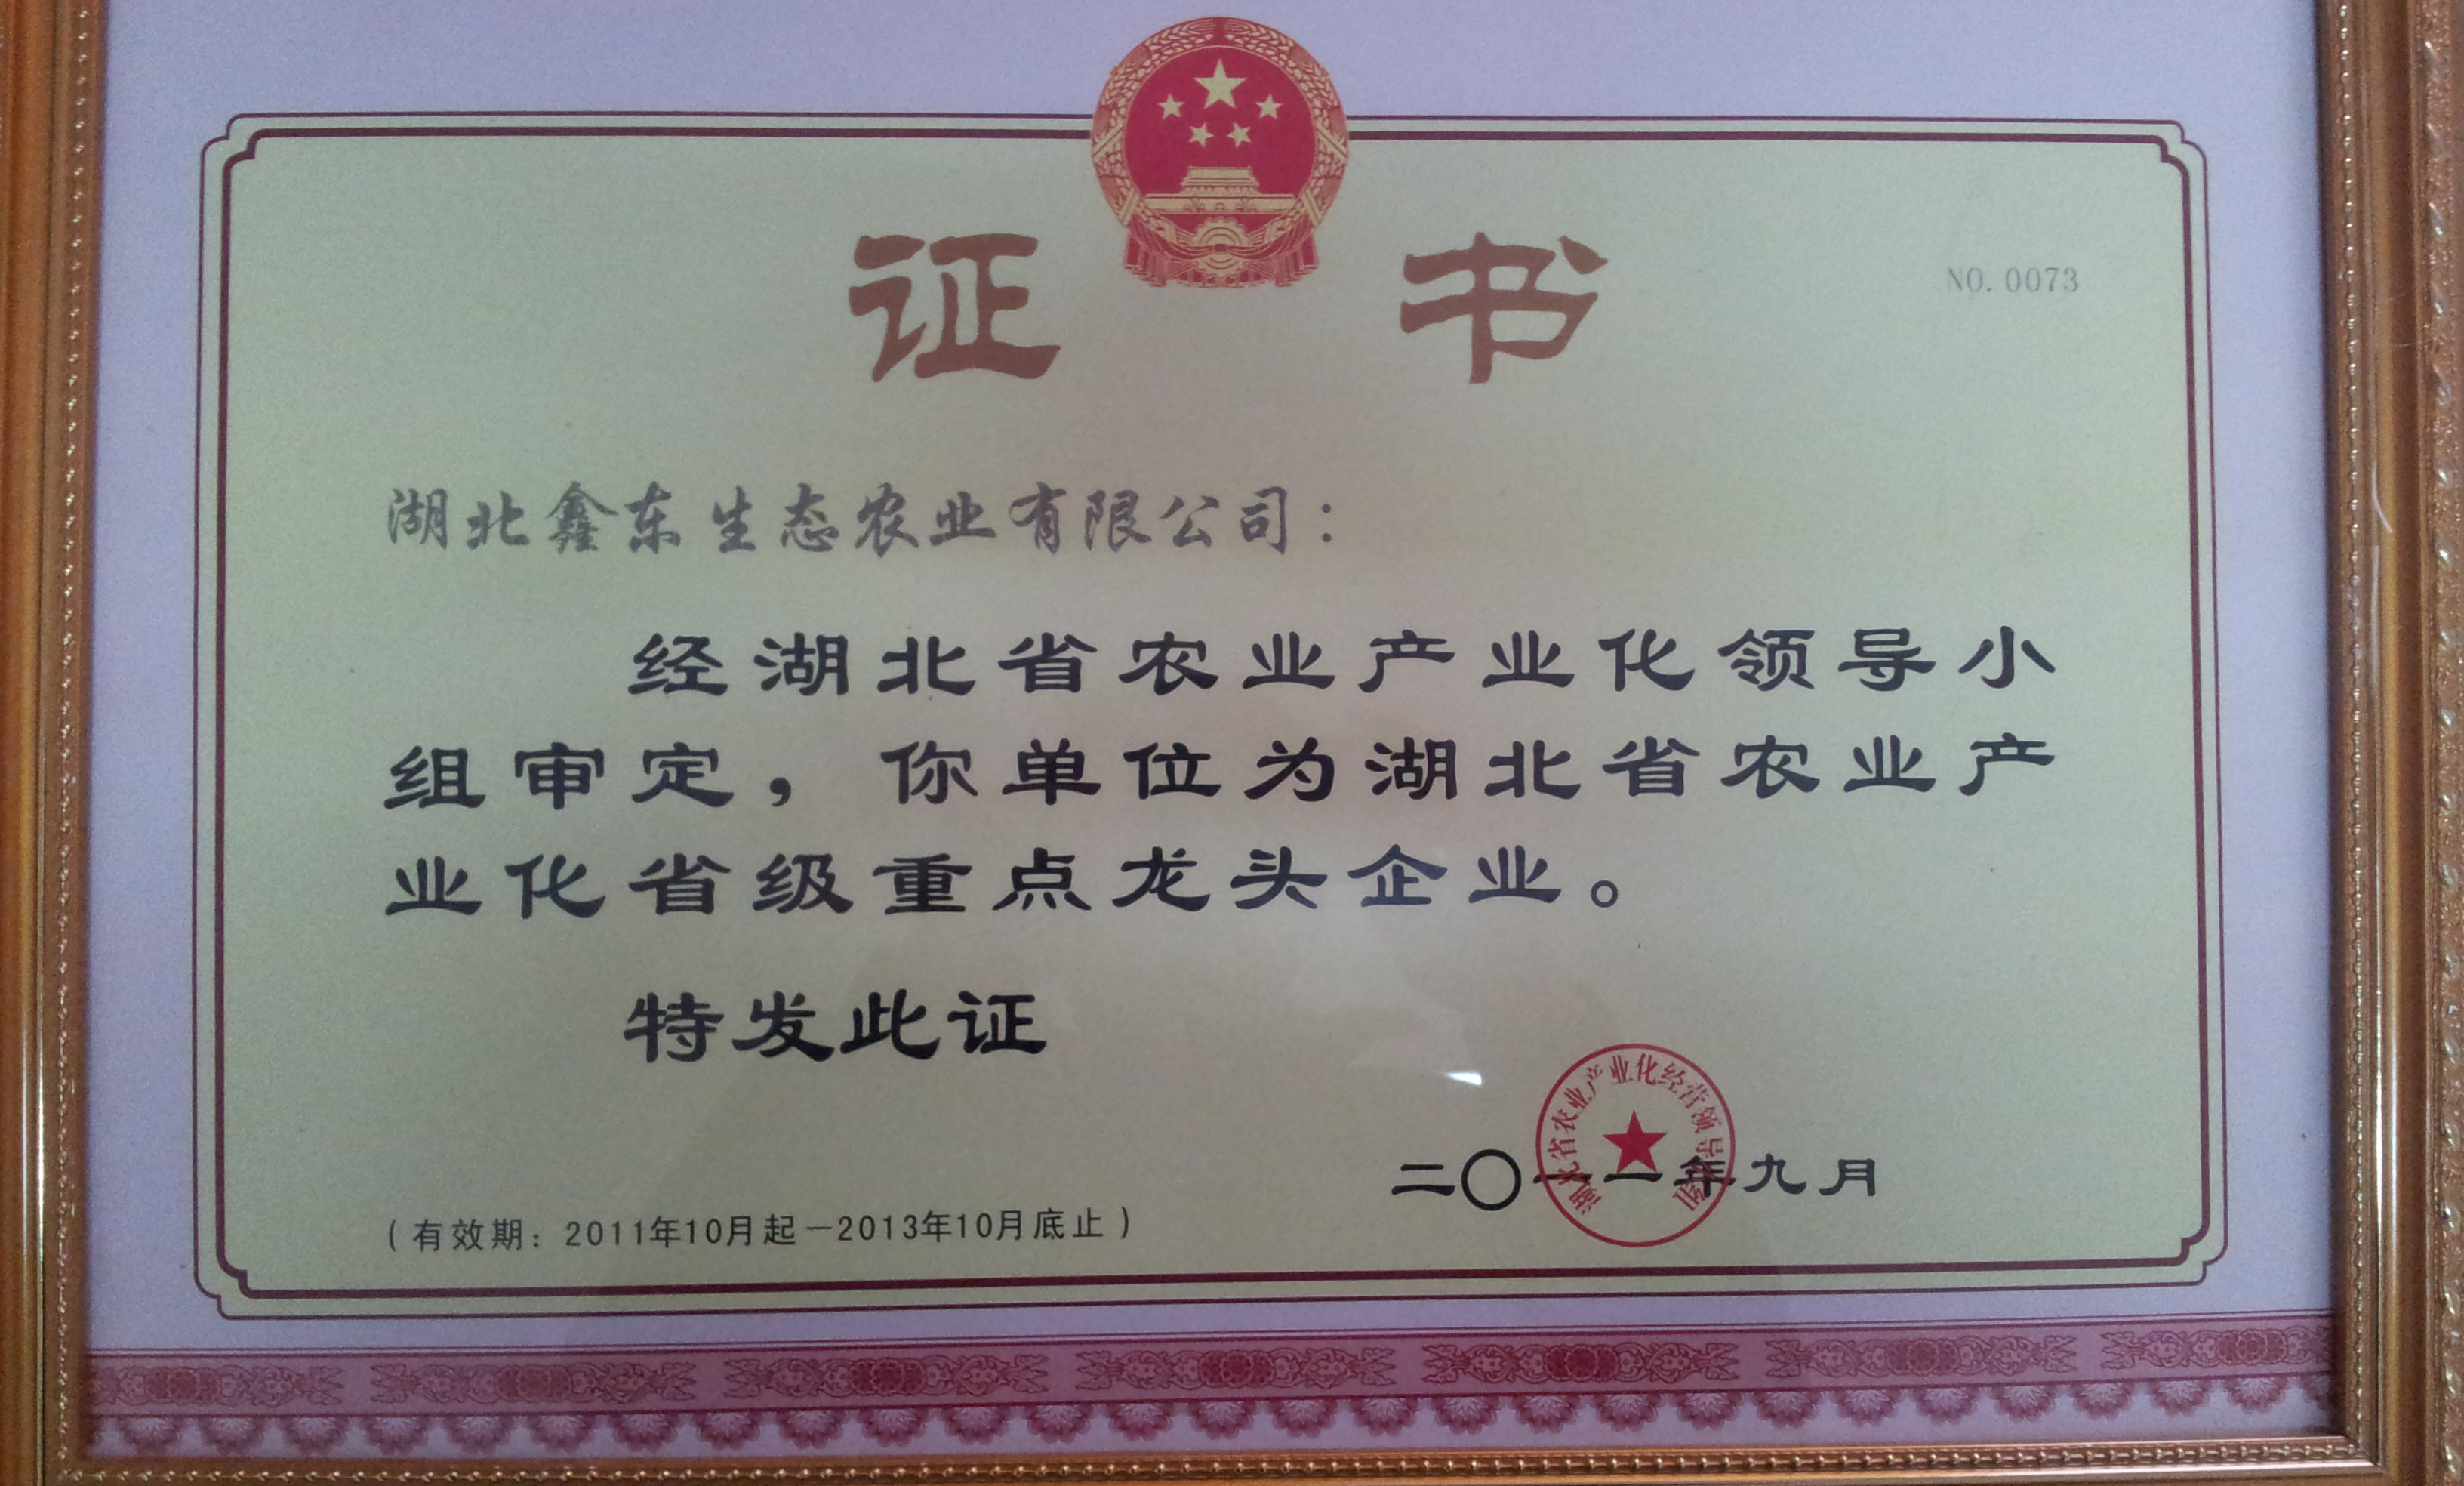 证书
NO.0073
湖北鑫东生态农业有限公司：
经湖北省农业产业化领导小
组审定，你单位为湖北省农业产
业化省级重点龙头企业。
特发此证
湖北省农业产业化经营领导小组
二〇一一年九月
（有效期：2011年10月起－2013年10月底止）